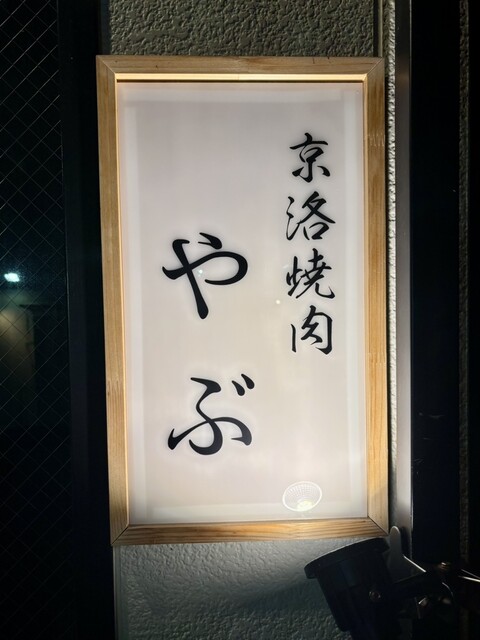 京洛焼肉
やぶ